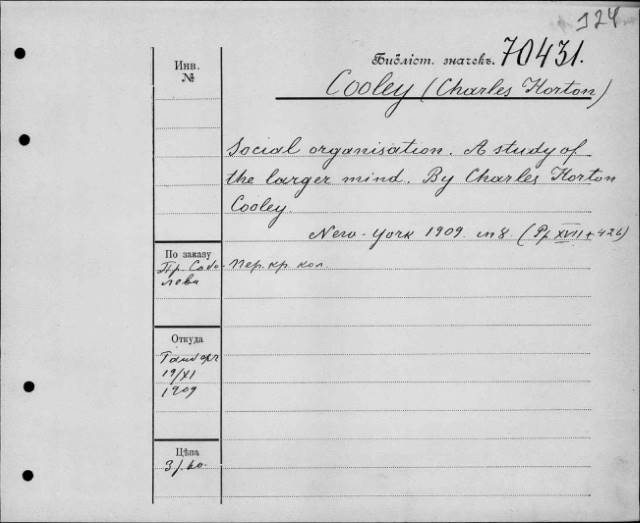 124
Инв.
№
Бібліот. значекъ. 70431.
Cooley (Charles Horton)
Social organisation. A study of
the larger mind. By Charles Horton
Cooley.
New-York 1909. in 8. (Pp XVII+426)
По заказу
Пр. Собо-
лева
Пер. кр. кол.
Откуда
19/XI
1909
Цѣна